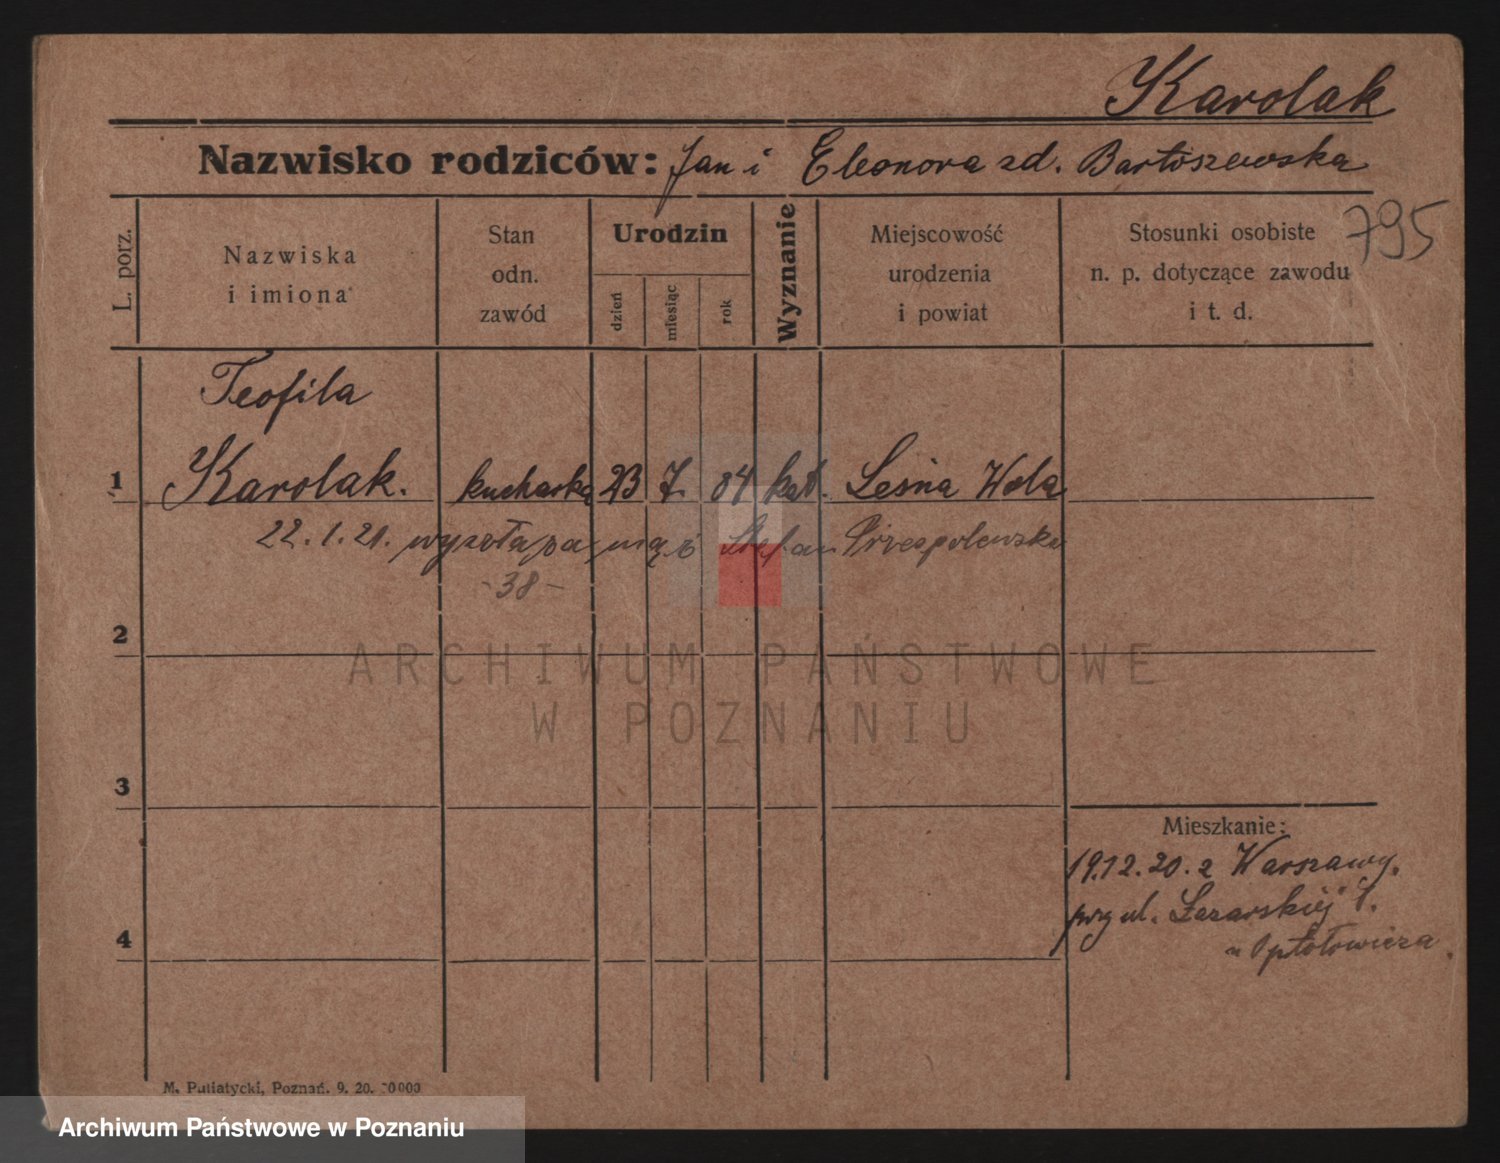 Karolak
Nazwisko rodziców: Jan i Eleonora zd. Bartoszewska
795
L. porz.
Nazwiska
i imiona
Stan
odn.
zawód
Urodzin
dzień
miesiąc
rok
Wyznanie
Miejscowość
urodzenia
i powiat
Stosunki osobiste
n. p. dotyczące zawodu
i t. d.
Teofila
1 Karolak. kucharka 23 7. 84 kat. Leśna Wola
22.1.21. wyszła za mąż Stefan Przespolewski
-38-
2
ARCHIWUM PAŃSTWOWE
W POZNANIU
3
Mieszkanie:
19.12.20. z Warszawy.
przy ul. Łazarskiej
4
M. Putiatycki, Poznań. 9. 20.
Archiwum Państwowe w Poznaniu